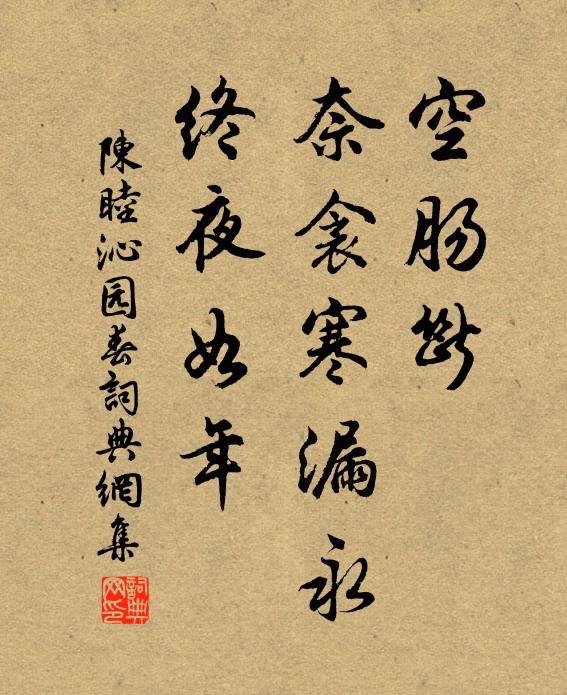 空肠斷
奈衾寒漏永
终夜如年
陳睦沁园春詞典網集
詞典网印